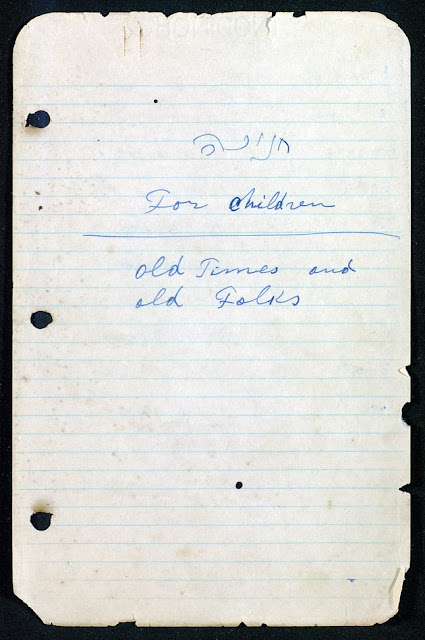 חנוכה
For children
old Times and
old Folks